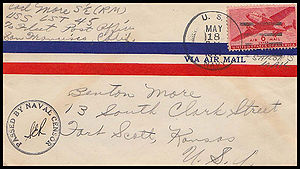 Carl More S1/c (RM)
USS LST 45
Fleet Post Office
San Francisco Calif.
U. S.
MAY
18
AIR 6¢ MAIL
VIA AIR MAIL
PASSED BY NAVAL CENSOR
Benton More
13 South Clark Street
Fort Scott, Kansas
U. S. A.